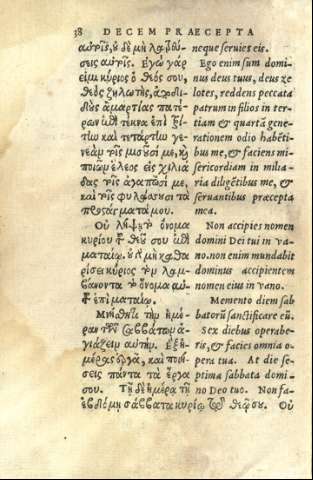 38 DECEM PRAECEPTA
αὐτοῖς, οὐδὲ μὴ λατρεύ-
σεις αὐτοῖς. Εγὼ γάρ
εἰμι κύριος ὁ θεός σου,
θεὸς ζηλωτὴς, ἀποδι-
δοὺς ἁμαρτίας πατέ-
ρων ἐπὶ τέκνα ἐπὶ τρί-
την καὶ τετάρτην γε-
νεὰν τοῖς μισοῦσί με, καὶ
ποιῶν ἔλεος εἰς χιλιά-
δας τοῖς ἀγαπῶσί με,
καὶ τοῖς φυλάσσουσι τὰ
προστάγματά μου.
Οὐ λήψῃ τὸ ὄνομα
κυρίου τοῦ θεοῦ σου ἐπὶ
ματαίῳ, οὐ γὰρ μὴ καθα-
ρίσει κύριος τὸν λαμ-
βάνοντα τὸ ὄνομα αὐ-
τοῦ ἐπὶ ματαίῳ.
Μνήσθητι τὴν ἡμέ-
ραν τῶν σαββάτων ἁ-
γιάζειν αὐτήν. Εξ ἡ-
μέρας ἐργᾷ, καὶ ποιή-
σεις πάντα τὰ ἔργα
σου. Τῇ δὲ ἡμέρᾳ τῇ
ἑβδόμῃ σάββατα κυρίῳ τῷ θεῷ σου. Οὐ
neque seruies eis.
Ego enim sum domi-
nus deus tuus, deus ze
lotes, reddens peccata
patrum in filios in ter-
tiam & quartā gene-
rationem odio habēti-
bus me, & faciens mi-
sericordiam in milia-
ria diligētibus me, &
seruantibus præcepta
mea.
Non accipies nomen
domini Dei tui in va-
no. non enim mundabit
dominus accipientem
nomen eius in vano.
Memento diem sab
batorū sanctificare eū.
Sex diebus operabe-
ris, & facies omnia o-
pera tua. At die se-
ptima sabbata domi-
no Deo tuo. Non fa-